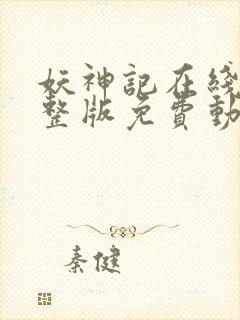 妖神記在綫
整版免費動
秦健